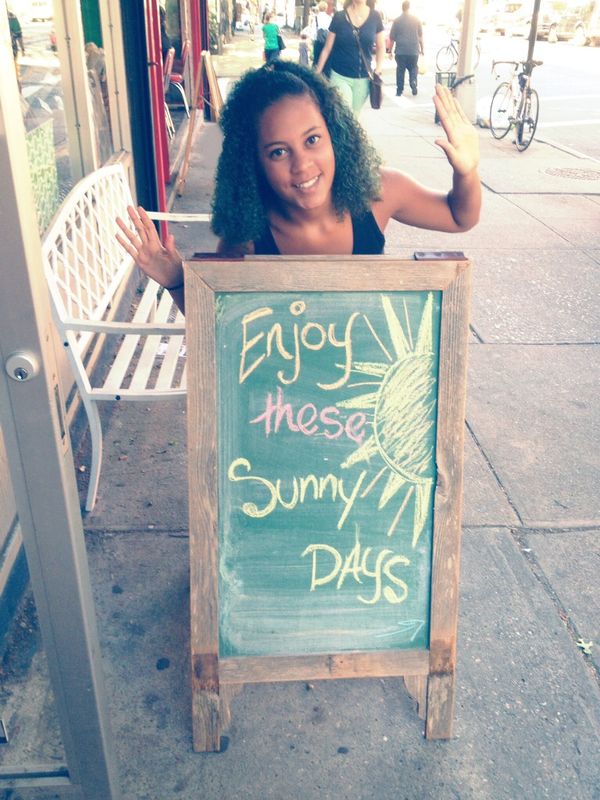 Enjoy
these
Sunny
DAYS